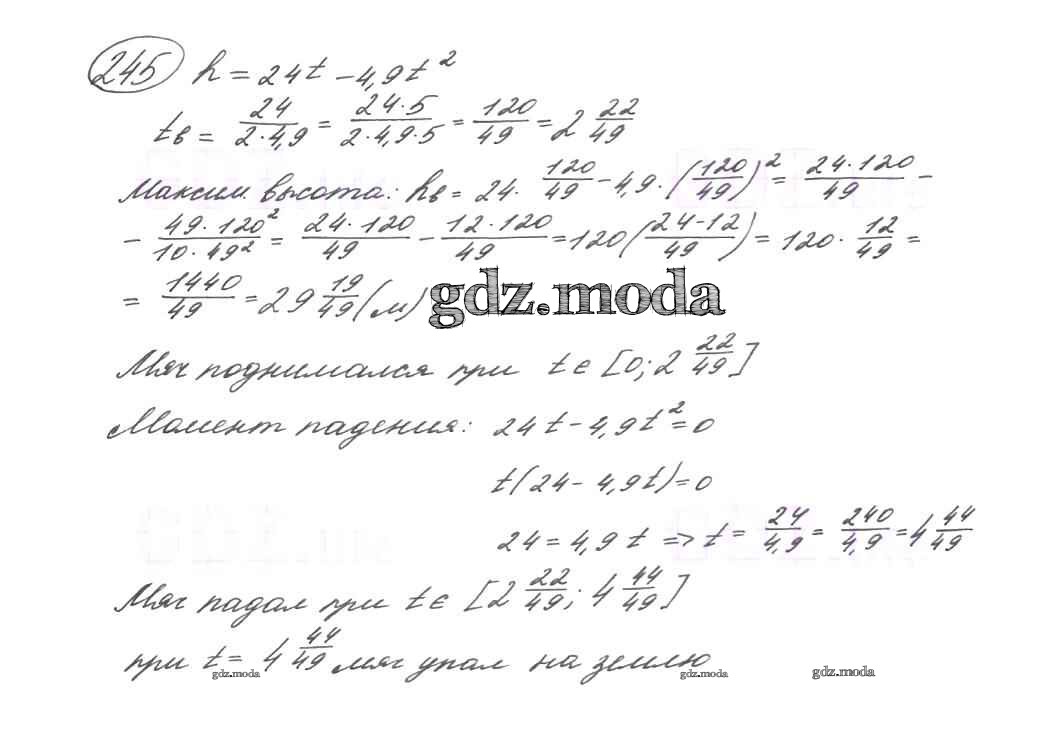 245 h = 24t - 4,9t²
tв = 24/(2·4,9) = (24·5)/(2·4,9·5) = 120/49 = 2 22/49
Максим. высота: hв = 24 · 120/49 - 4,9 · (120/49)² = (24·120)/49 -
- (49·120²)/(10·49²) = (24·120)/49 - (12·120)/49 = 120((24-12)/49) = 120 · 12/49 =
= 1440/49 = 29 19/49 (м)
gdz.moda
Мяч поднимался при t ∈ [0; 2 22/49]
Момент падения: 24t - 4,9t² = 0
t(24 - 4,9t) = 0
24 = 4,9t => t = 24/4,9 = 240/4,9 = 4 44/49
Мяч падал при t ∈ [2 22/49; 4 44/49]
при t = 4 44/49 мяч упал на землю
gdz.moda gdz.moda gdz.moda